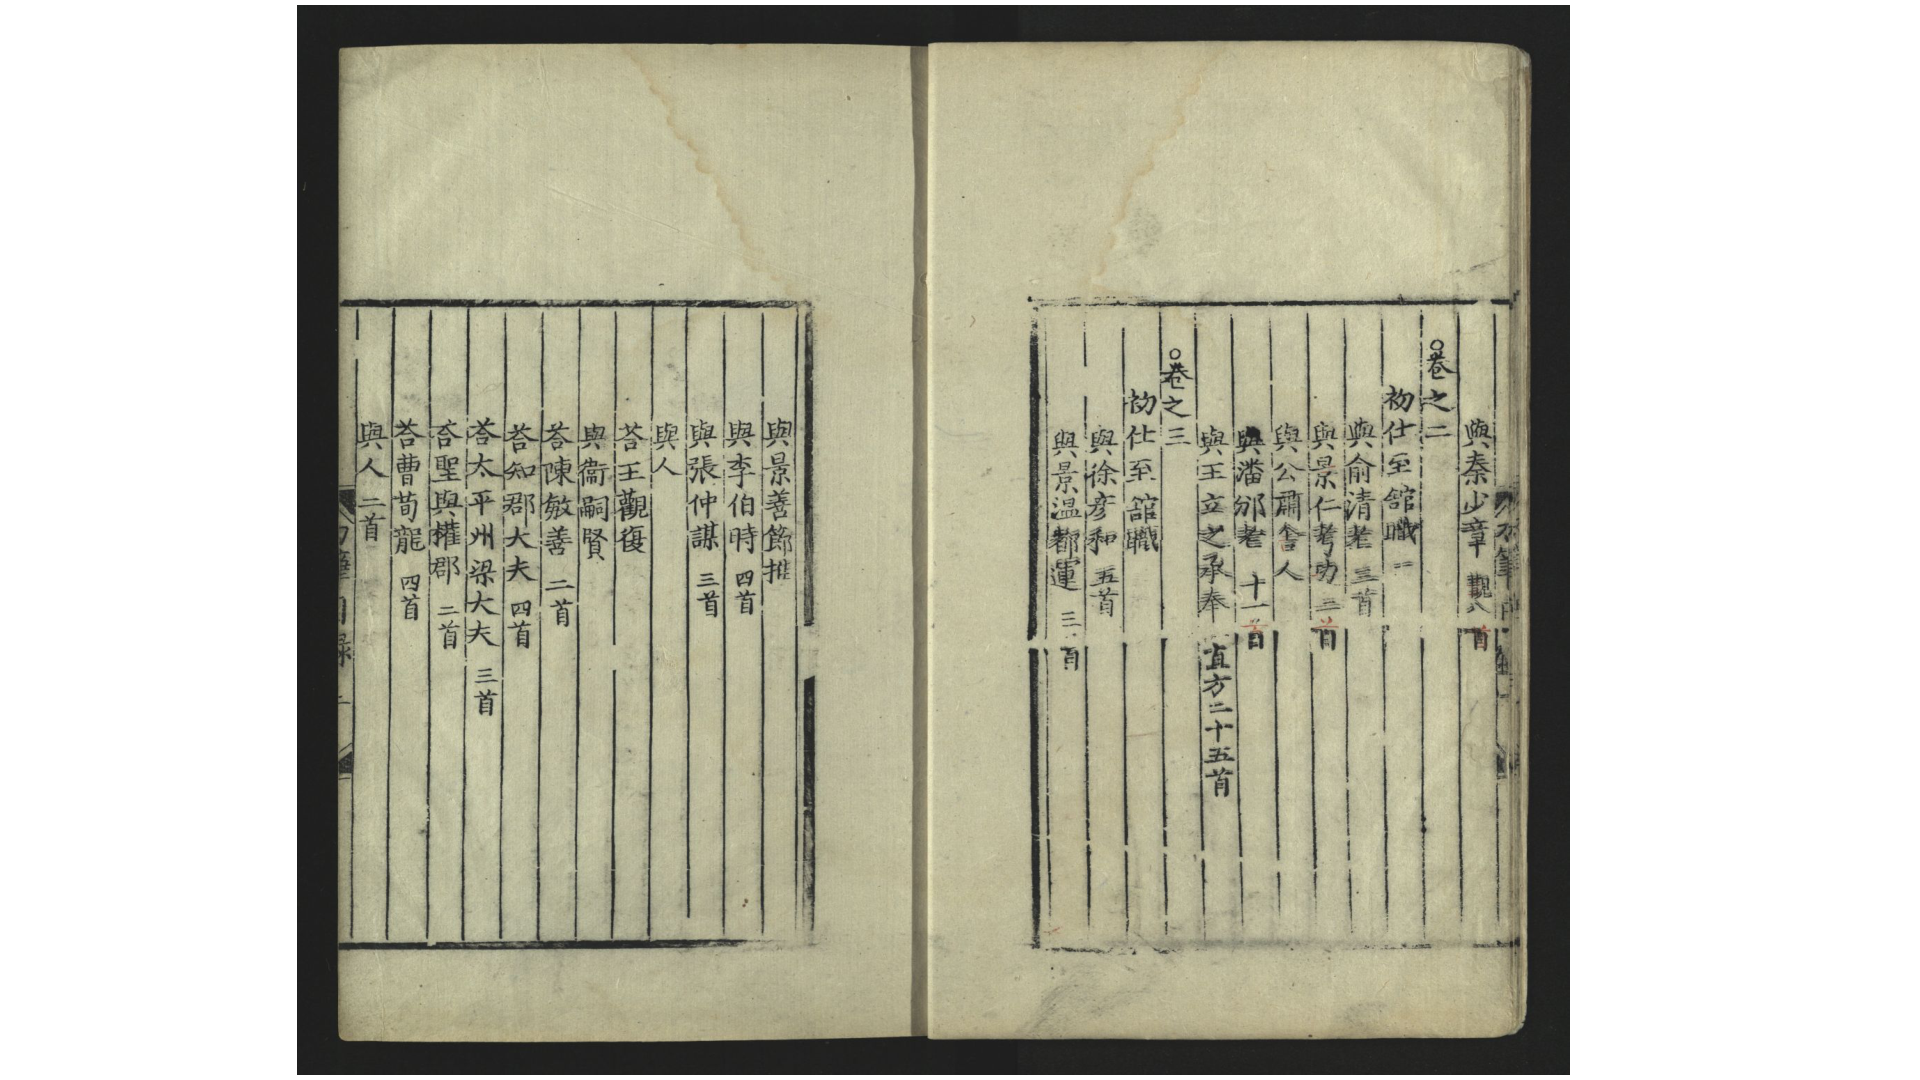 與秦少章觀 八首
○卷之二
初仕至舘職一
與俞清老 三首
與景仁考功 二首
與公肅舍人
與潘邠老 十一首
與王立之承奉 直方二十五首
○卷之三
初仕至舘職
與徐彦和 五首
與景温都運 三首
與景善節推
與李伯時 四首
與張仲謀 三首
與人
荅王觀復
與衞嗣賢
荅陳敏善 二首
荅知郡大夫 四首
荅太平州梁大夫 三首
荅聖與權郡 二首
荅曹荀龍 四首
與人 二首